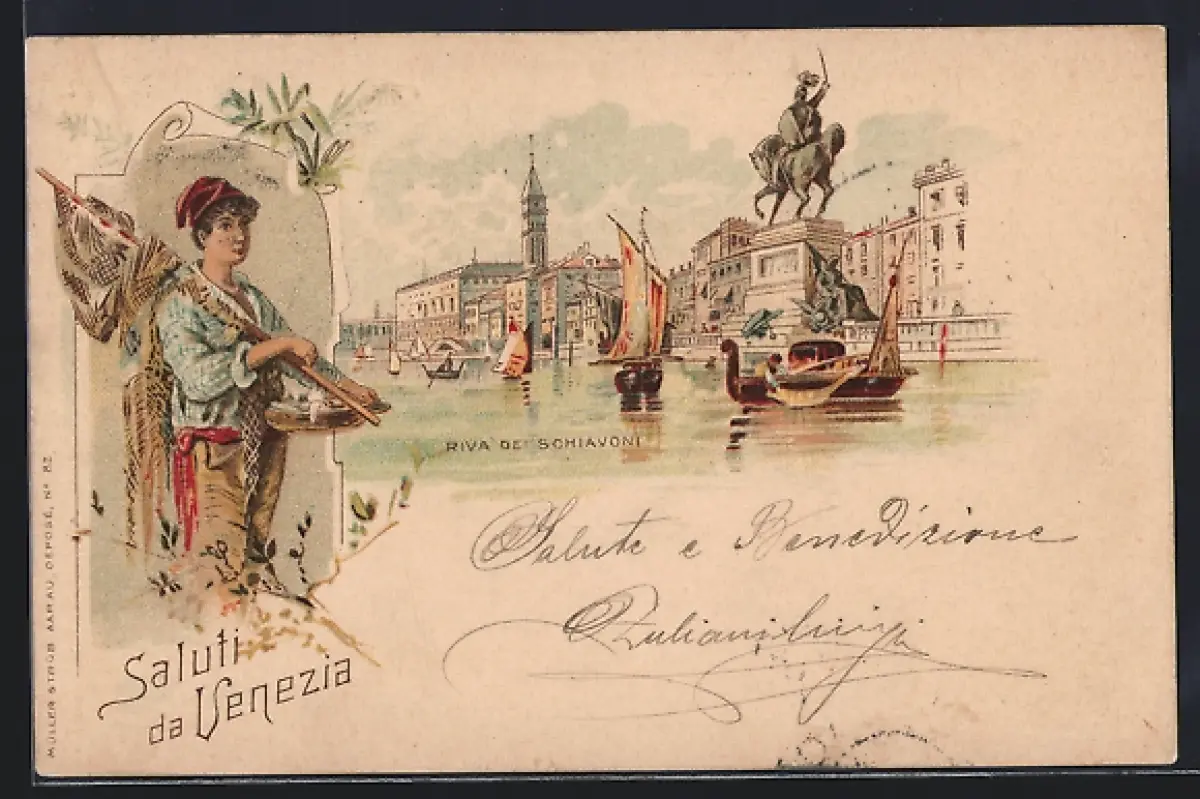 RIVA DEI SCHIAVONI
Salute e Benedizione
Zuliani Luigi
Saluti
da Venezia
MÜLLER & TRÜB AARAU, DEPOSÉ, Nº 82